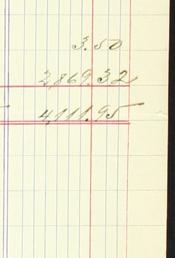 3.50
3,869.32
4,111.95